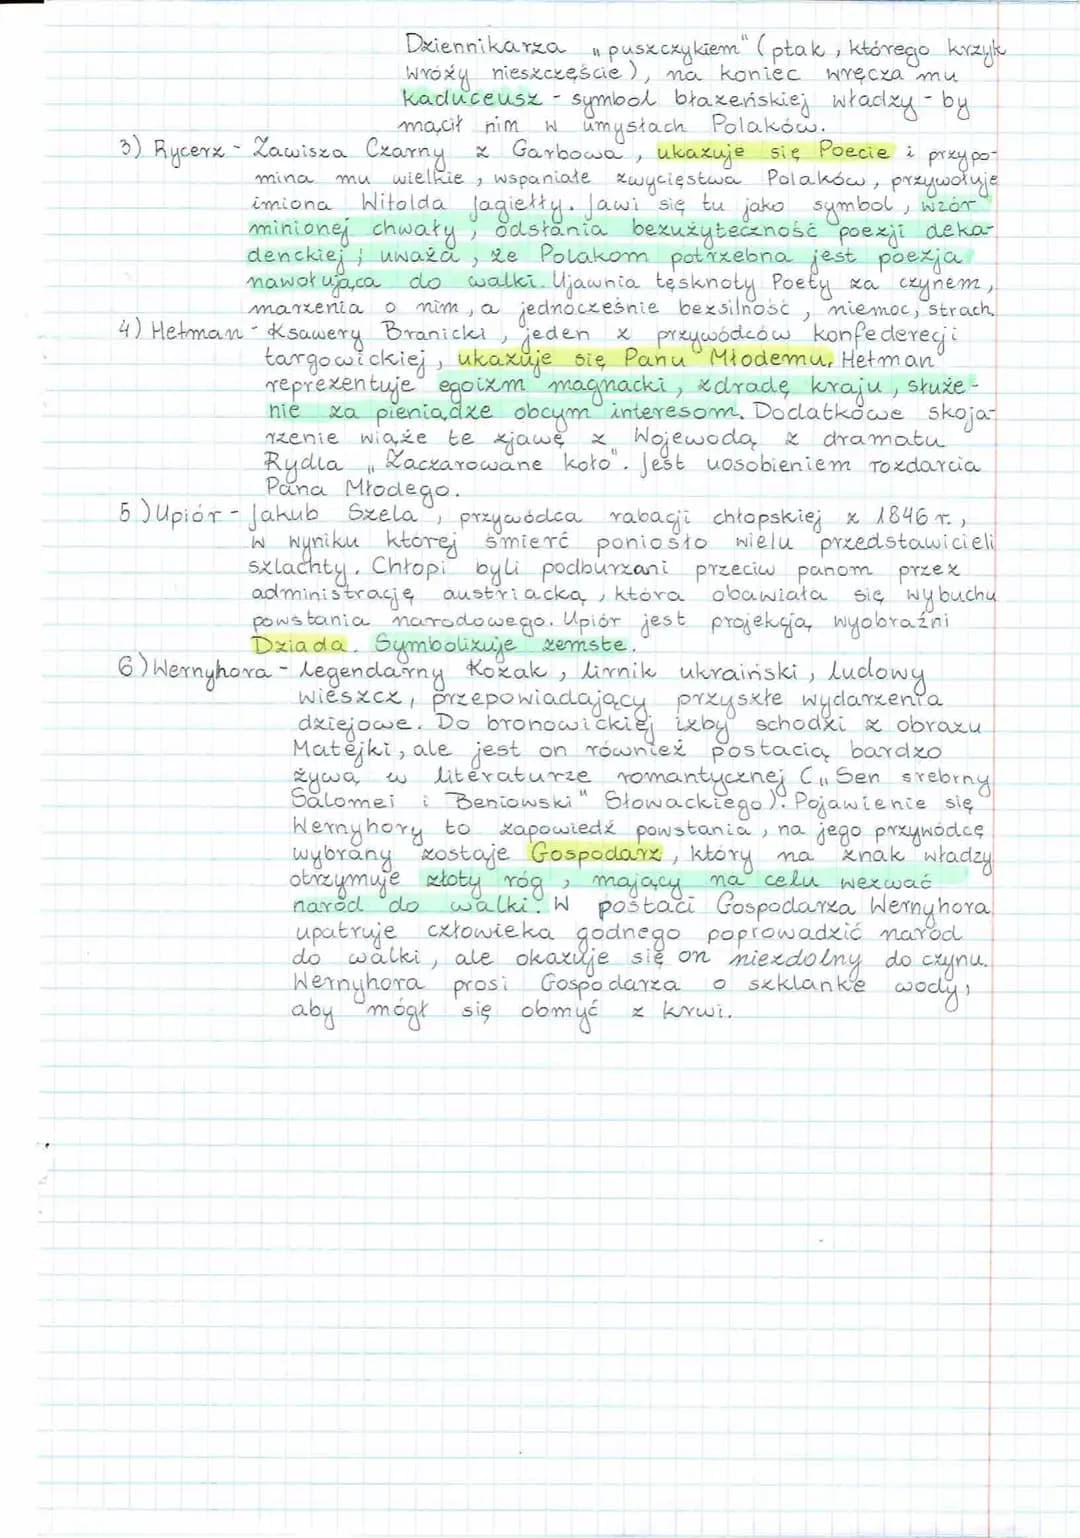 Dziennikarza „puszczykiem" (ptak, którego krzyk
wróży nieszczęście), na koniec wręcza mu
kaduceusz - symbol błazeńskiej władzy - by
mącił nim w umysłach Polaków.
3) Rycerz - Zawisza Czarny z Garbowa, ukazuje się Poecie i przypo-
mina mu wielkie, wspaniałe zwycięstwa Polaków, przywołuje
imiona Witolda Jagiełły. Jawi się tu jako symbol, wzór
minionej chwały, odsłania bezużyteczność poezji deka-
denckiej; uważa, że Polakom potrzebna jest poezja
nawołująca do walki. Ujawnia tęsknoty Poety za czynem,
marzenia o nim, a jednocześnie bezsilność, niemoc, strach.
4) Hetman - Ksawery Branicki, jeden z przywódców konfederecji
targowickiej, ukazuje się Panu Młodemu. Hetman
reprezentuje egoizm magnacki, zdradę kraju, służe-
nie za pieniądze obcym interesom. Dodatkowe skoja-
rzenie wiąże te zjawę z Wojewodą z dramatu
Rydla „Zaczarowane koło". Jest uosobieniem rozdarcia
Pana Młodego.
5) Upiór - Jakub Szela, przywódca rabacji chłopskiej z 1846 r.,
w wyniku której śmierć poniosło wielu przedstawicieli
szlachty. Chłopi byli podburzani przeciw panom przez
administrację austriacką, która obawiała się wybuchu
powstania narodowego. Upiór jest projekcją wyobraźni
Dziada. Symbolizuje zemste.
6) Wernyhora - legendarny Kozak, lirnik ukraiński, ludowy
wieszcz, przepowiadający przyszłe wydarzenia
dziejowe. Do bronowickiej izby schodzi z obrazu
Matejki, ale jest on również postacią bardzo
żywą w literaturze romantycznej („Sen srebrny
Salomei i Beniowski" Słowackiego). Pojawienie się
Wernyhory to zapowiedź powstania, na jego przywódcę
wybrany zostaje Gospodarz, który na znak władzy
otrzymuje złoty róg, mający na celu wezwać
naród do walki. W postaci Gospodarza Wernyhora
upatruje człowieka godnego poprowadzić naród
do walki, ale okazuje się on niezdolny do czynu.
Wernyhora prosi Gospodarza o szklanke wody,
aby mógł się obmyć z krwi.